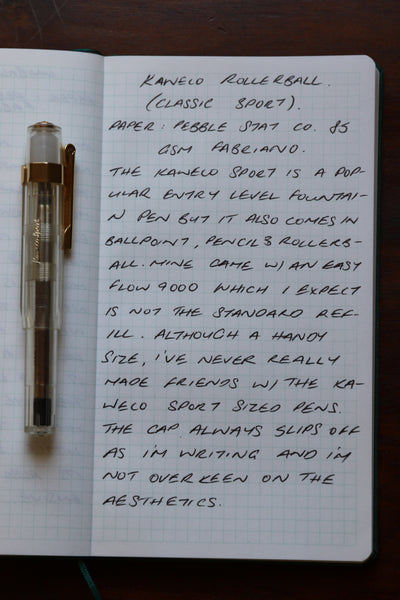 KAWECO ROLLERBALL.
(CLASSIC SPORT).
PAPER: PEBBLE STAT CO. 85
GSM FABRIANO.
THE KAWECO SPORT IS A POP-
ULAR ENTRY LEVEL FOUNTAI-
N PEN BUT IT ALSO COMES IN
BALLPOINT, PENCIL & ROLLERB-
ALL. MINE CAME W/ AN EASY
FLOW 9000 WHICH I EXPECT
IS NOT THE STANDARD REF-
ILL. ALTHOUGH A HANDY
SIZE, I'VE NEVER REALLY
MADE FRIENDS W/ THE KA-
WECO SPORT SIZED PENS.
THE CAP ALWAYS SLIPS OFF
AS I'M WRITING AND I'M
NOT OVER KEEN ON THE
AESTHETICS.